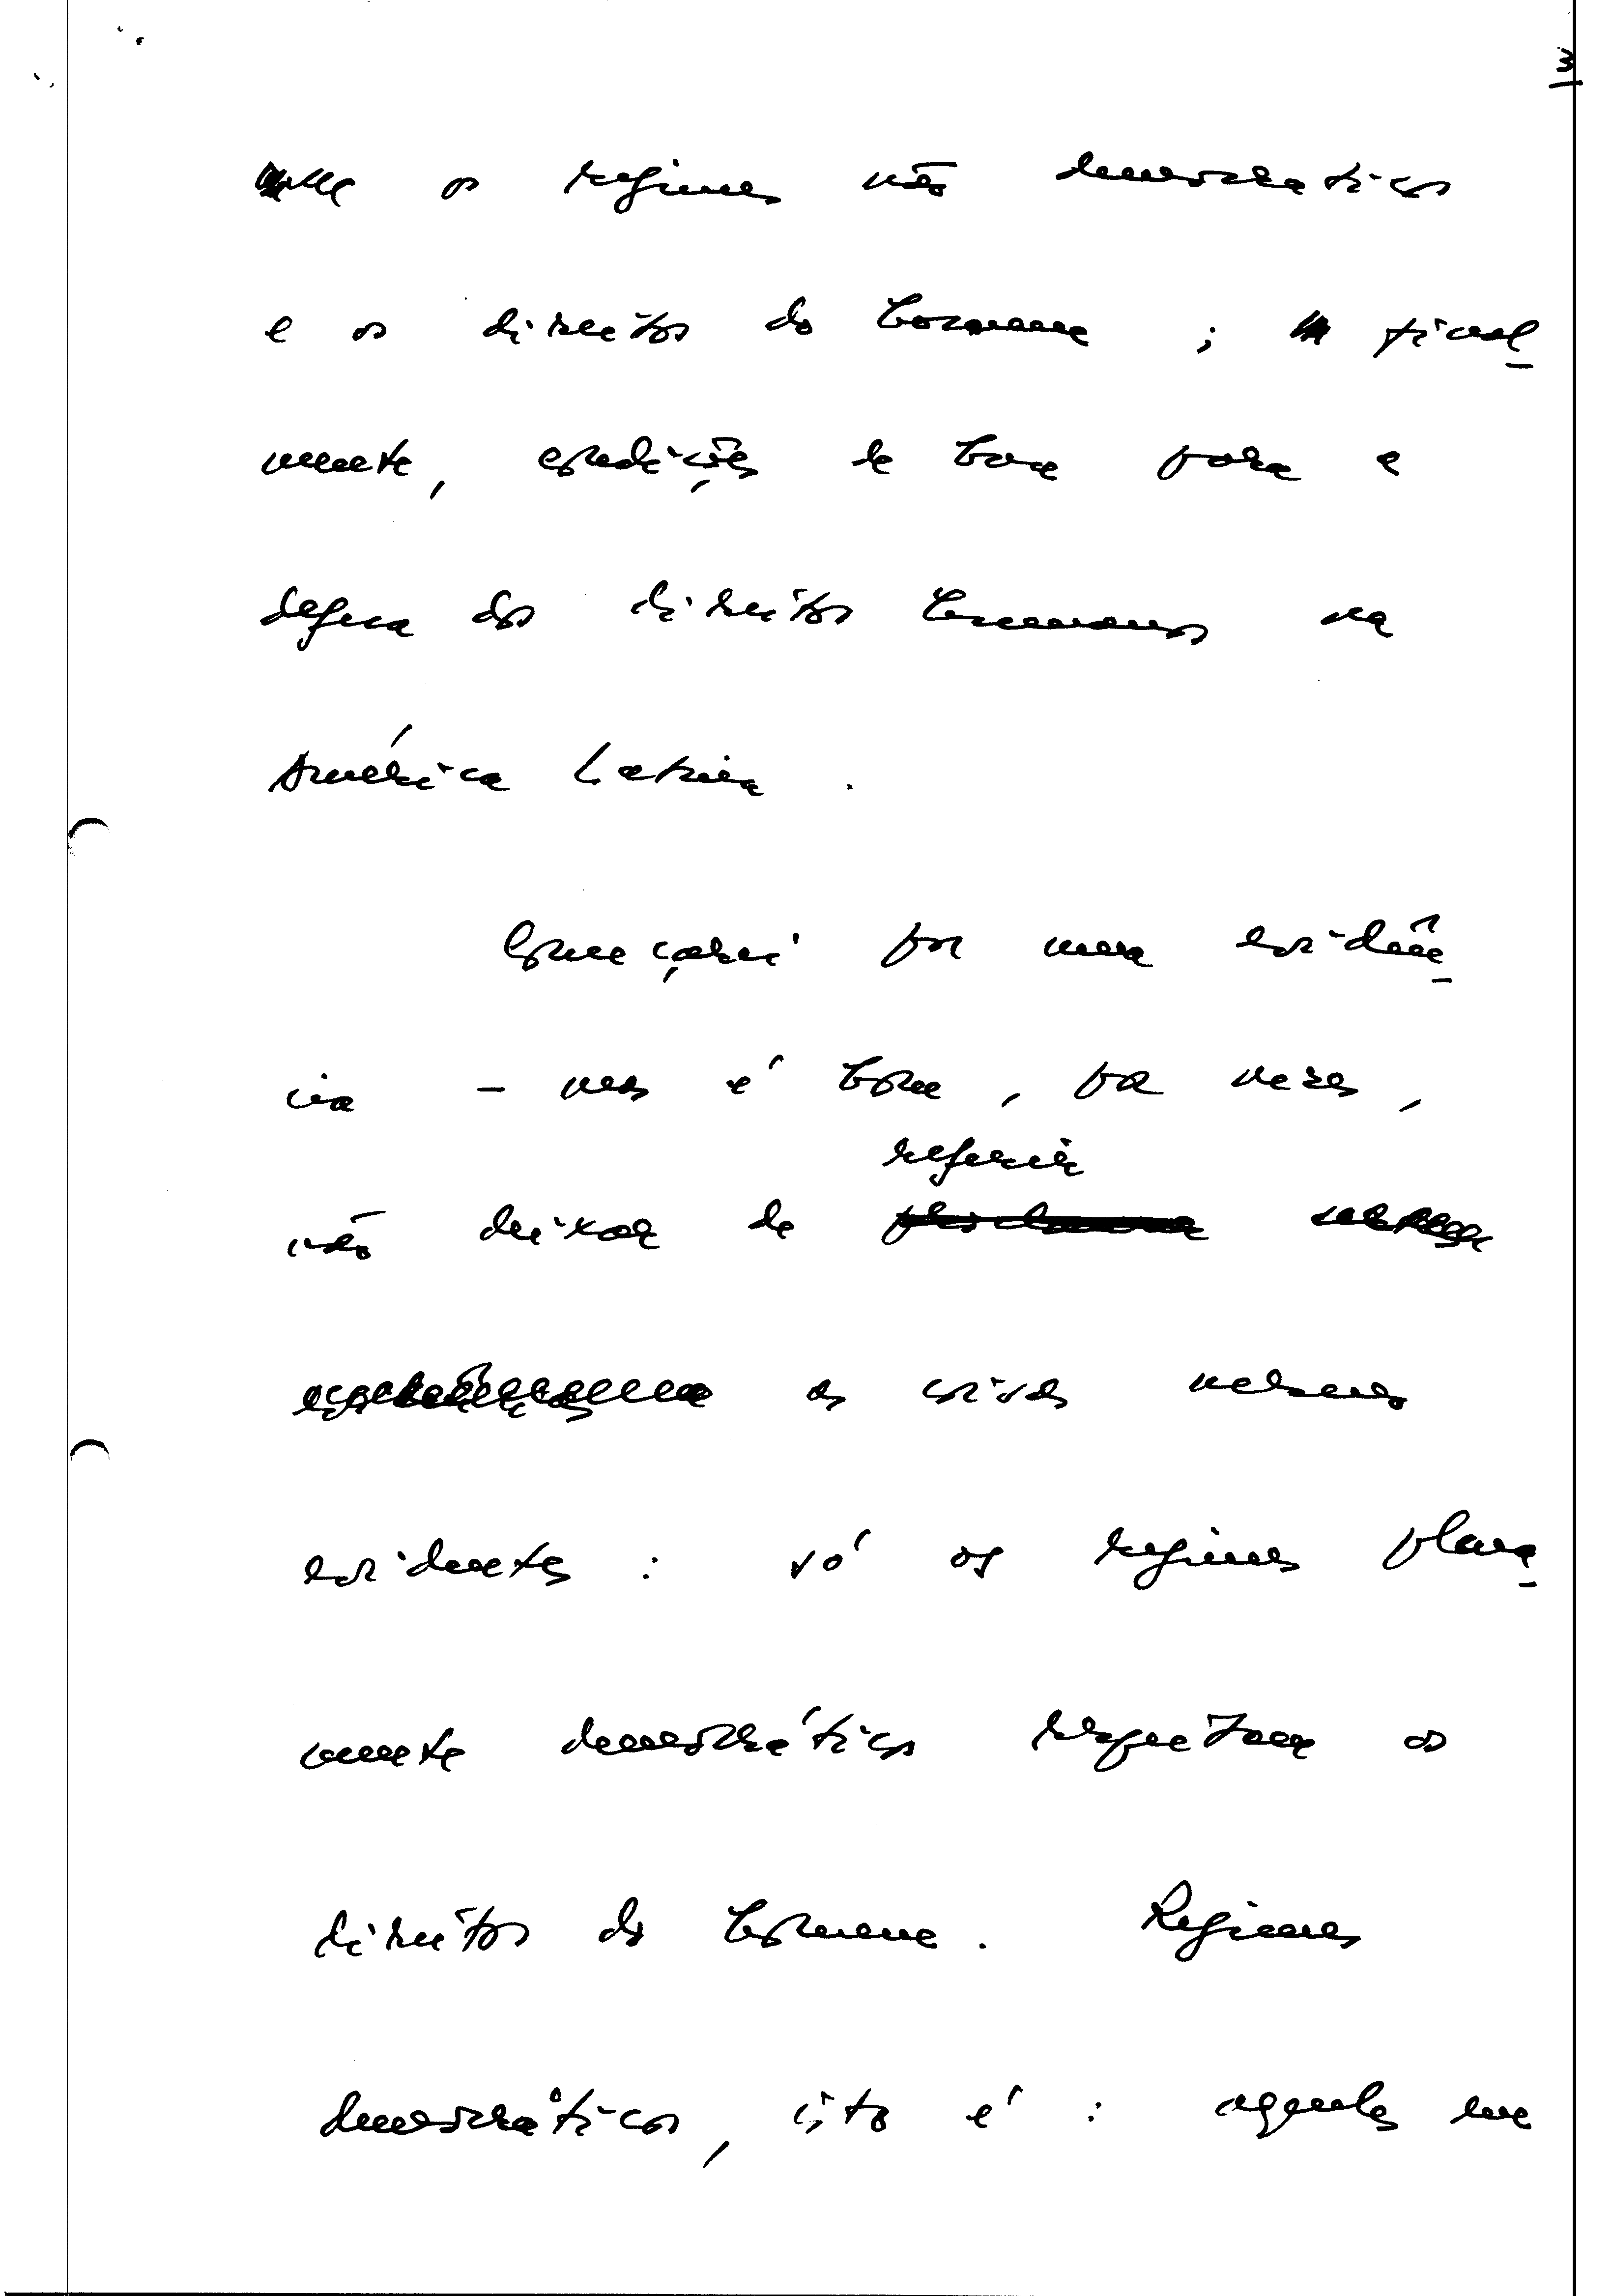 3
os regimes não democraticos
e os direitos do homem ; final
mente, condições de luta para a
defesa dos direitos humanos na
América Latina .
Começarei por uma evidên
cia - mas é bom, por vezes,
referir
não deixar de
as coisas mesmo
evidentes : só os regimes plena
mente democráticos respeitam os
direitos do homem . Regimes
democráticos, isto é : aqueles em